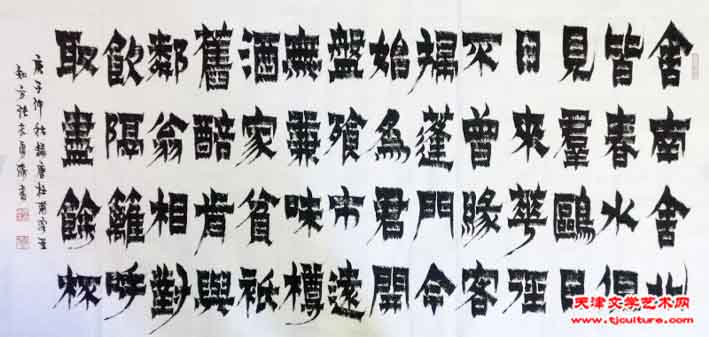 舍南舍北
皆春水但
見羣鷗日
日來華徑
不曾緣客
掃蓬門今
始為君開
盤飱市遠
無兼味樽
酒家貧祇
舊醅肯與
鄰翁相對
飲隔籬呼
取盡餘杯
庚子仲秋錄唐杜甫客至
天津文学艺术网
www.tjculture.com